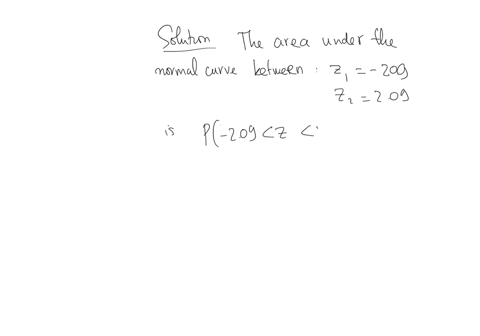 Solution The area under the
normal curve between: z₁ = -2.09
z₂ = 2.09
is P(-2.09 < z <